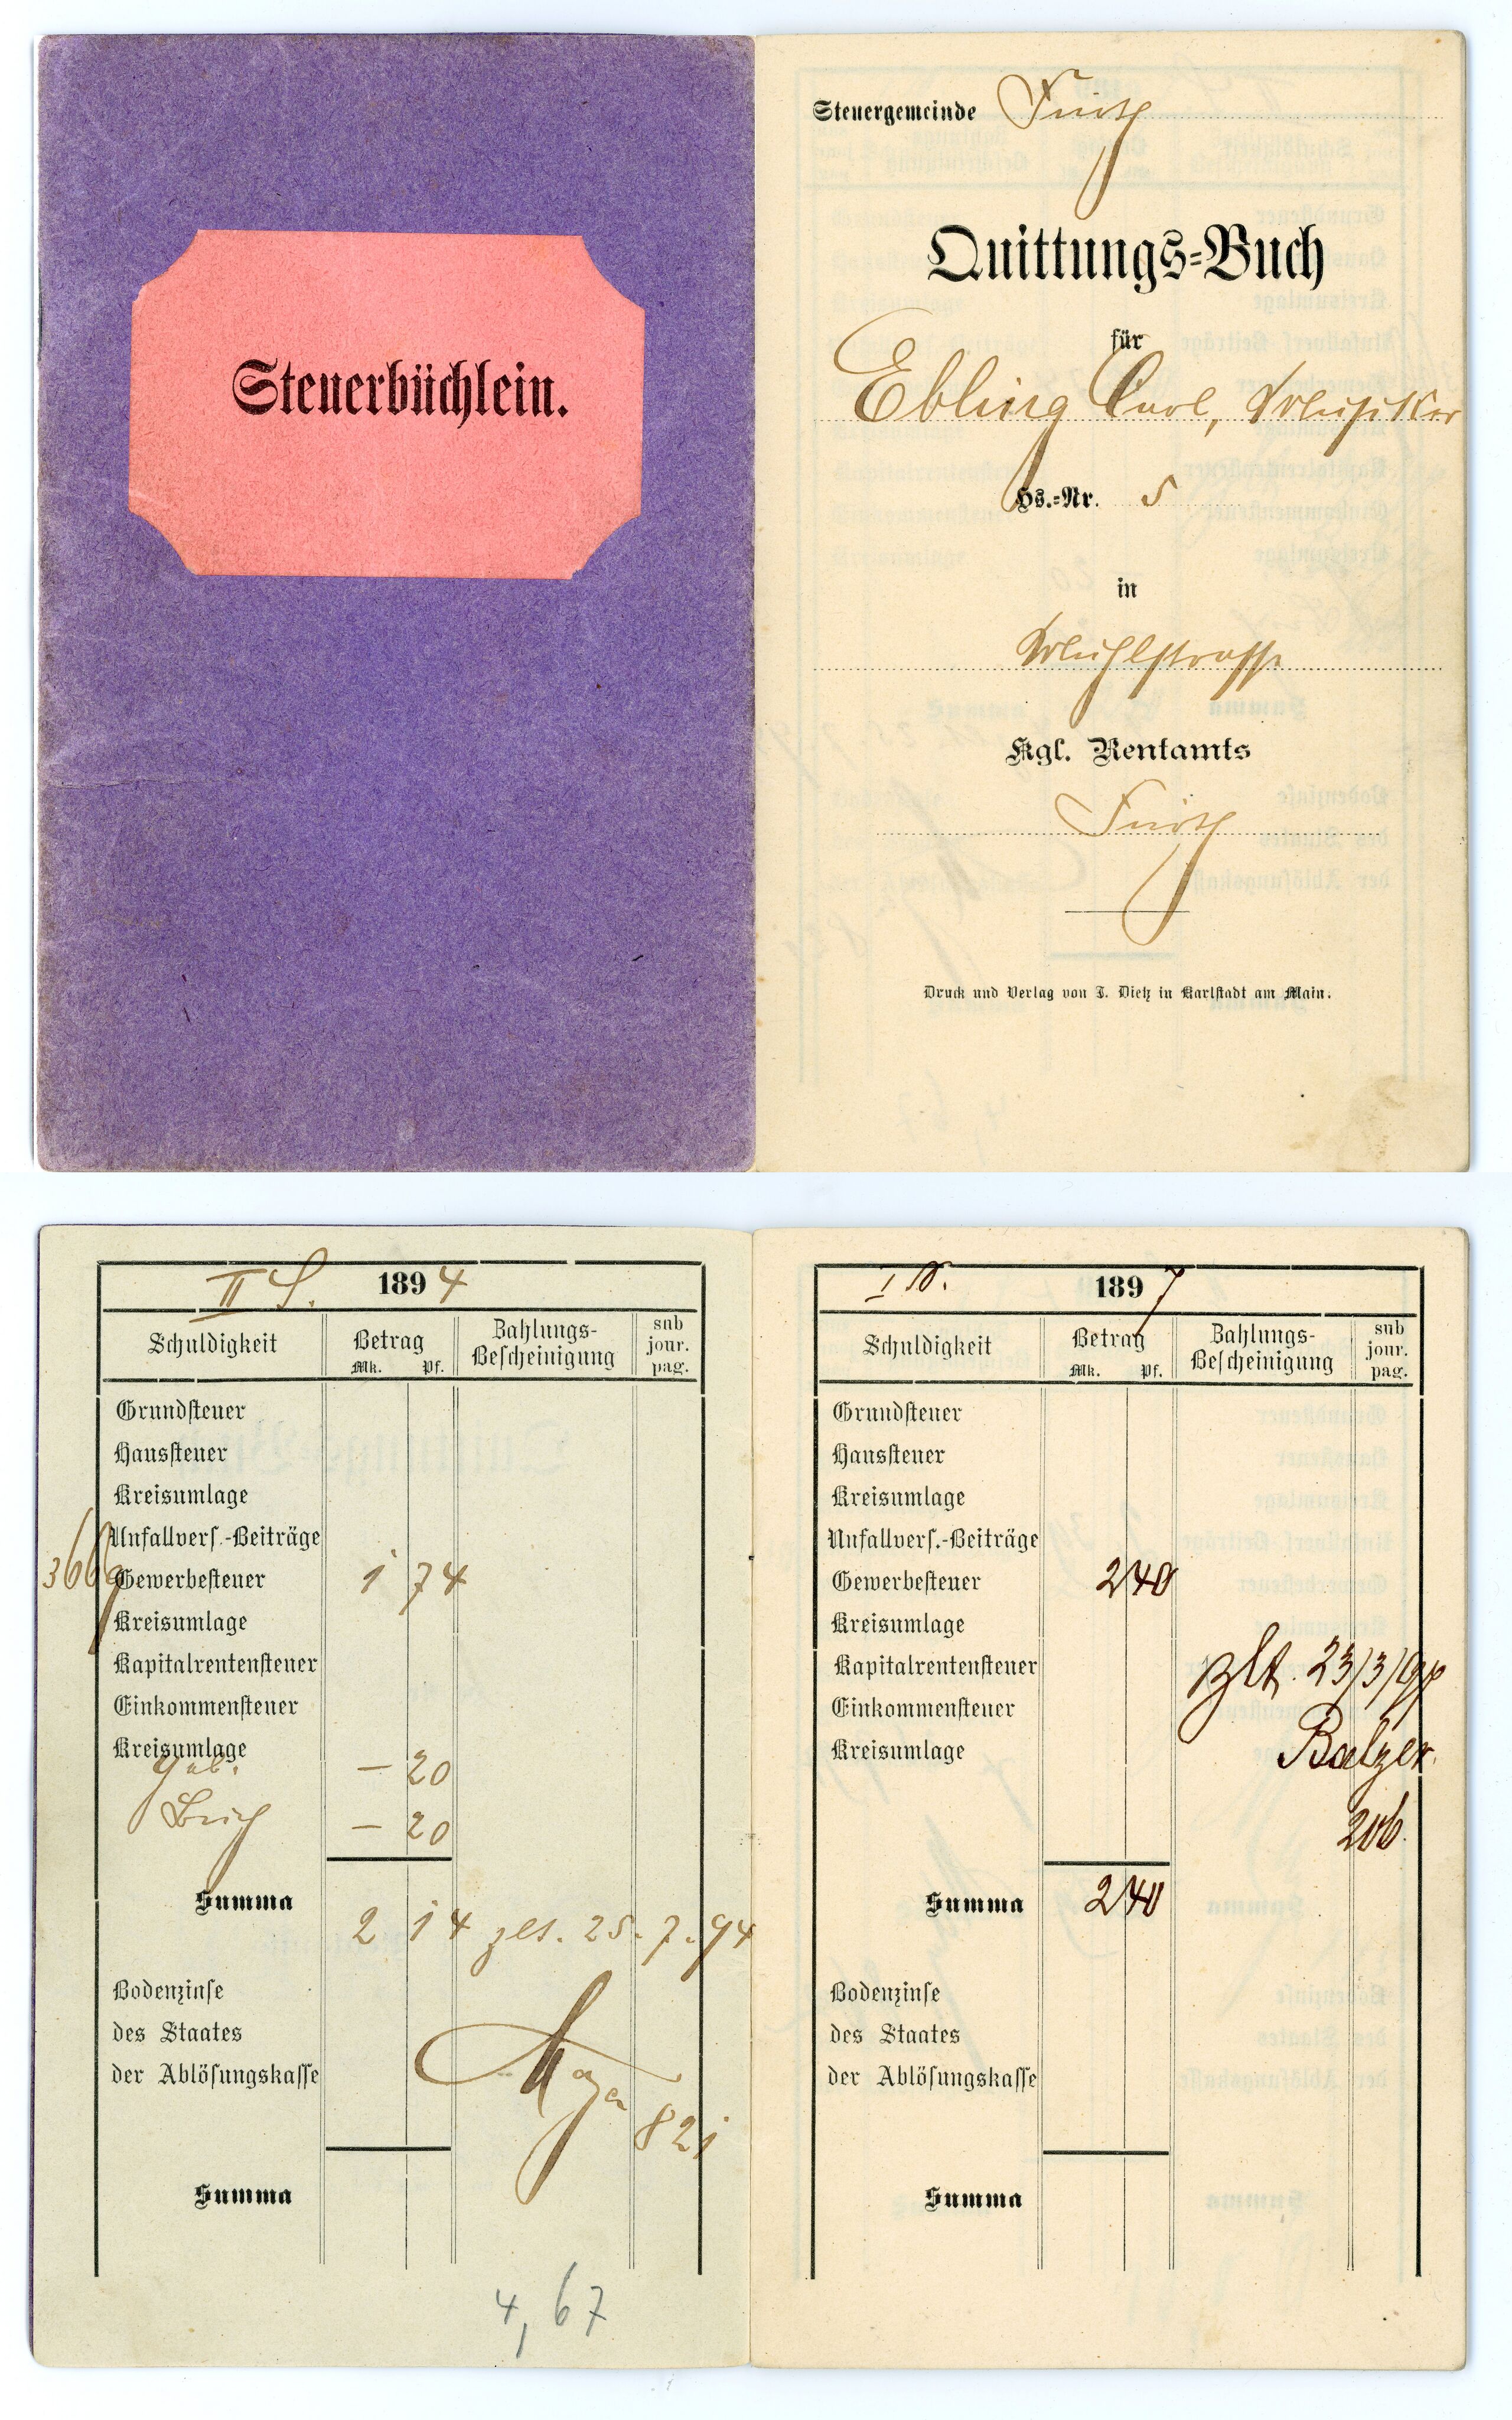 Steuerbüchlein.
Steuergemeinde Fürth
Quittungs-Buch
für
Ebling Carl, Musiker
Hs.-Nr. 5
in
Mühlstrasse
Kgl. Rentamts
Fürth
Druck und Verlag von J. Dietz in Karlstadt am Main.
II 1894
Schuldigkeit Betrag Zahlungs- sub
Mk. Pf. Bescheinigung jour.
pag.
Grundsteuer
Haussteuer
Kreisumlage
Unfallvers.-Beiträge
Gewerbesteuer 1 74
Kreisumlage
Kapitalrentensteuer
Einkommensteuer
Kreisumlage
Geb. – 20
Buch – 20
Summa 2 14 25.7.94
Bodenzinse
des Staates
der Ablösungskasse
821
Summa
4,67
I 1897
Schuldigkeit Betrag Zahlungs- sub
Mk. Pf. Bescheinigung jour.
pag.
Grundsteuer
Haussteuer
Kreisumlage
Unfallvers.-Beiträge
Gewerbesteuer 2 40
Kreisumlage
Kapitalrentensteuer bzlt. 23/3/97
Einkommensteuer
Kreisumlage Balzer.
206.
Summa 2 40
Bodenzinse
des Staates
der Ablösungskasse
Summa